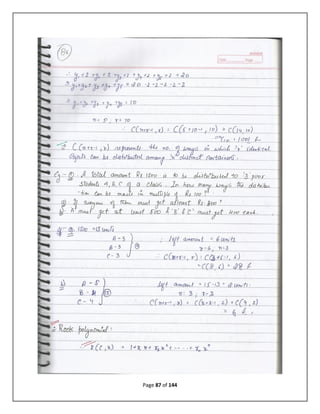 86
∴ y₁+2 + y₂+2 + y₃+2 + y₄+2 + y₅+2 = 20
y₁+y₂+y₃+y₄+y₅ = 20-2-2-2-2-2
y₁+y₂+y₃+y₄+y₅ = 10
n = 5, r = 10
∴ C(n+r-1, r) = C(5+10-1, 10) = C(14, 10)
= 1001
C(n+r-1, r) represents the no. of ways in which 'r' identical
objects can be distributed among 'n' distinct containers.
A total amount Rs 1500 is to be distributed to 3 poor
students A, B, C of a class. In how many ways the distribu
-tion can be made in multiple of Rs 100
a) If everyone of them must get atleast Rs 300?
b) A must get at least 500 & B & C must get 400 each.
1500 = 15 units
A - 3
B - 3
C - 3
9
left amount = 6 units
r = 6, n = 3
∴ C(n+r-1, r) = C(3+6-1, 6)
= C(8, 6) = 28
b) A - 5
B - 4
C - 4
13
left amount = 15-13 = 2 units
n = 3, r = 2
C(n+r-1, r) = C(3+2-1, 2) = C(4, 2)
= 6
Rook polynomial:
r(C, x) = 1 + r₁x + r₂x² + ---- + rₙxⁿ
Page 87 of 144